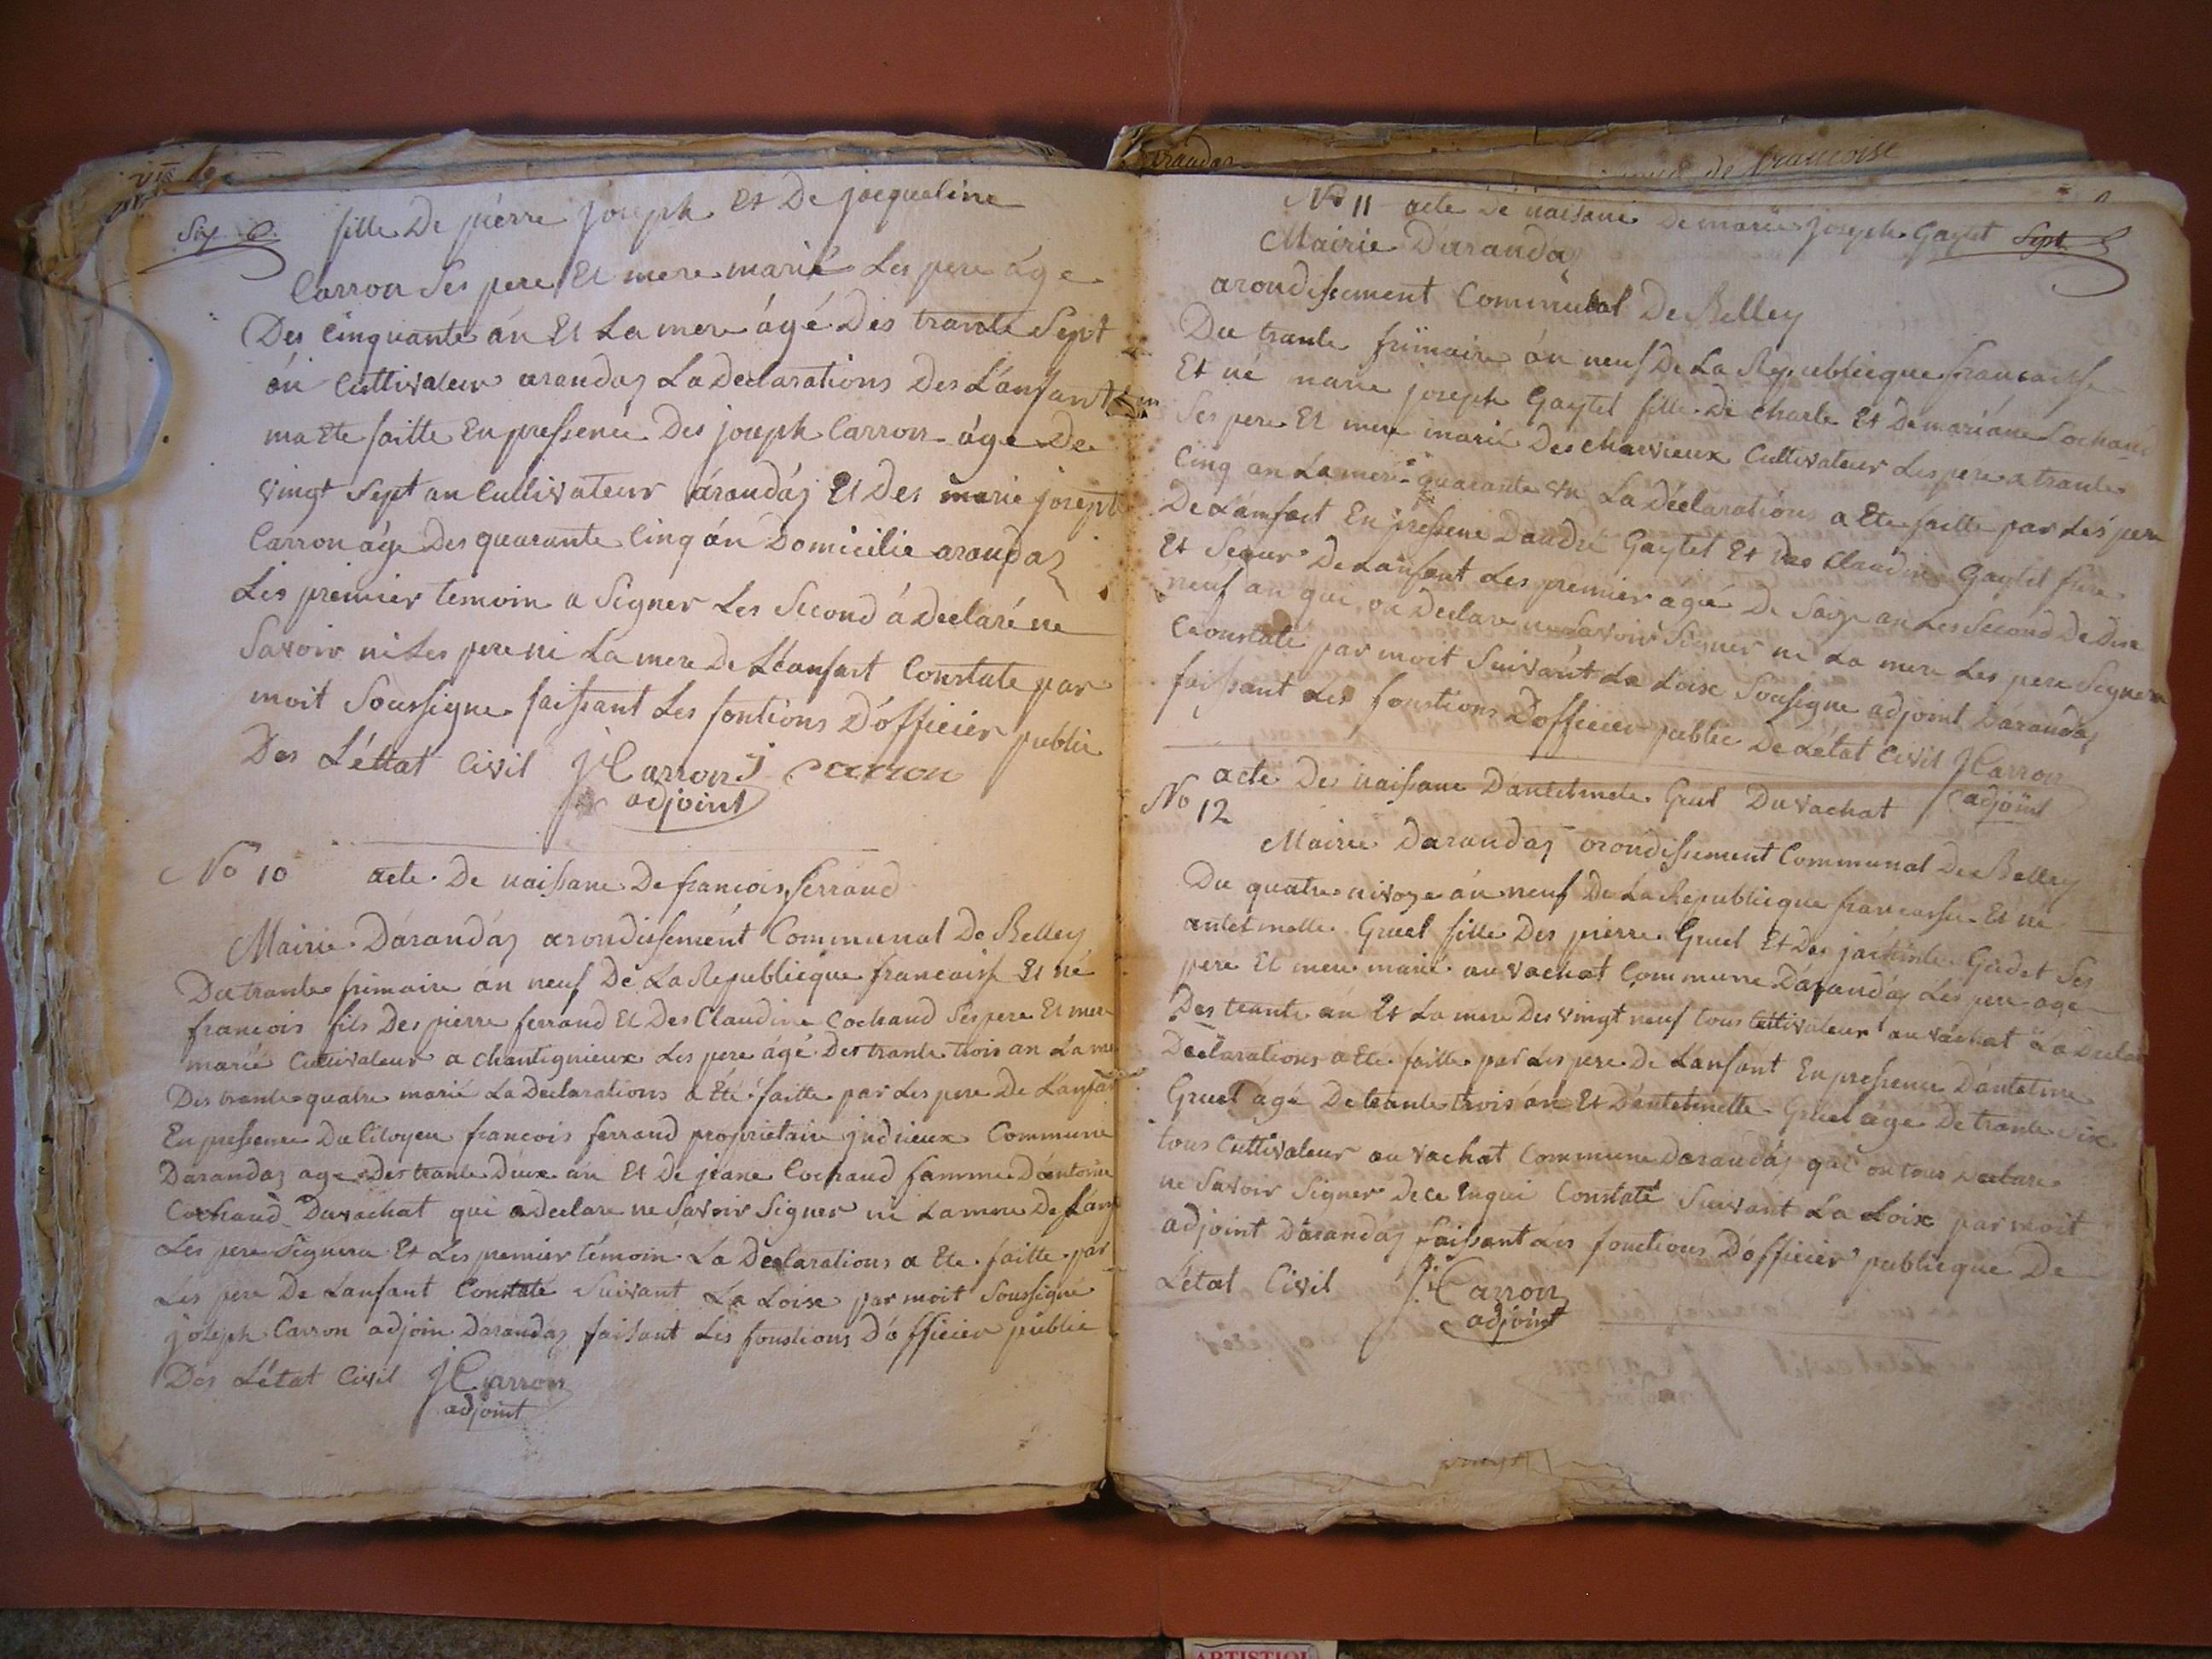 Six 6.
fille De pierre joseph Et De jacqueline
Carron Ses pere Et mere marié Les pere áge
Des Cinquante án Et La mere ágé Des trante Sept
án Cultivateur arandas La Declarations Des L'anfant
ma Ete faitte En pressence Des joseph Carron áge De
vingt Sept an Cultivateur árandás Et Des marie joseph
Carron áge Des quarante Cinq án Domicilie arandas
Les premier temoin a Signer Les Second á Declaré ne
Savoir ni Les pere ni La mere De L'éanfant Constate par
moit Soussigne faissant Les fontions D'officier public
Des L'éttat Civil JCarron J carron
adjoint
No 10 acte De naissane De francois ferrand
Mairie Dárandás arondissemént Communal De Belley
Du trante frimaire án neuf De La Republicque francaisse Et né
francois fils Des pierre ferrand Et Des Claudine Cochaud Ses pere Et mere
marié Cultivateur a Chantignieux Les pere ágé Des trante trois an La me
Des trante quatre marié La Declarations a Eté faitte par Les pere De L'anfan
En pressence Du Citoyen francois ferrand proprietaire judrieux Commune
Darandas age Des trante Deux án Et De jeane Cochaud famme D'antoine
Cochaud Duvachat qui a Declare ne Savoir Signer ni La mere De L'anf
Les pere Signera Et Les premier témoin La Declarations a Ete faitte par
Les pere De L'anfant Constaté Suivant La Loise par moit Soussigné
joseph Carron adjoin Darandas faisant Les fonstions D'officier public
Des L'état Civil JCarron
adjoint
No 11 acte De naisane De marie joseph Gaytet Sept
Mairie D'arandas
arondissement Communal De Belley
Du trante frimaire án neuf De La Republicque francaisse
Et né marie joseph Gaytet fille De Charle Et De mariane Cochaud
Ses pere Et mere marié Des charvieux Cultivateur Les pere a trante
Cinq an La mere quarante un La Déclarations a Ete faitte par Les pere
De L'amfant En pressene D'andré Gaytet Et Des Claudine Gaytet frere
Et Seour De L'anfant Les premier agé De Saize an Les Second De Dix
neuf an qui on Declare ne Savoir Signer ni La mere Les pere Signera
Constaté par moit Suivant La Loise Soussigne adjoint Dárandás
faissant Les fonstions D'officier public De L'état Civil JCarron
adjoint
No 12 acte De naissane D'antelmete Gruel Du vachat
Mairie Darandas arondissement Communal De Belley
Du quatre nivoze án neuf De La Republicque francaisse Et né
antelmette Gruel fille Des pierre Gruel Et Des jacinte Gudet Ses
pere Et mere marié au vachat Commune Dárandás Les pere age
Des trante án Et La mere Des vingt neuf tous Cultivateur au vachat La Decla
Declarations a Eté faitte par Les pere De L'anfant En pressence D'antelme
Gruel ágé De trante trois án Et D'antelmette Gruel áge De trante Six
tous Cultivateur au vachat Commune Darandás qui on tous Declare
ne Savoir Signer De ce Enqui Constaté Suivant La Loix par moit
adjoint D'arandás faissant Les fonctions D'officier publicque De
L'état Civil JCarron
adjoint